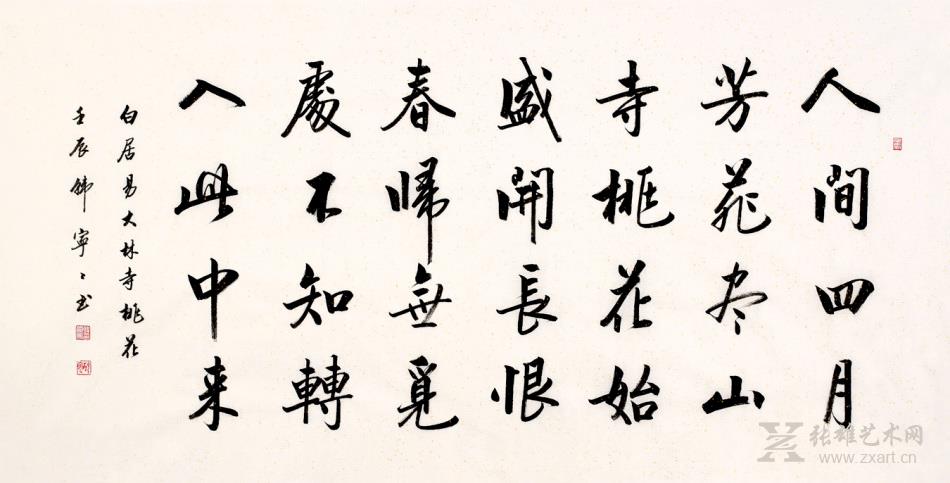 人間四月
芳菲尽山
寺桃花始
盛開長恨
春歸無覓
處不知轉
入此中来
白居易大林寺桃花
壬辰韩寧〻书
张雄艺术网
www.zxart.cn